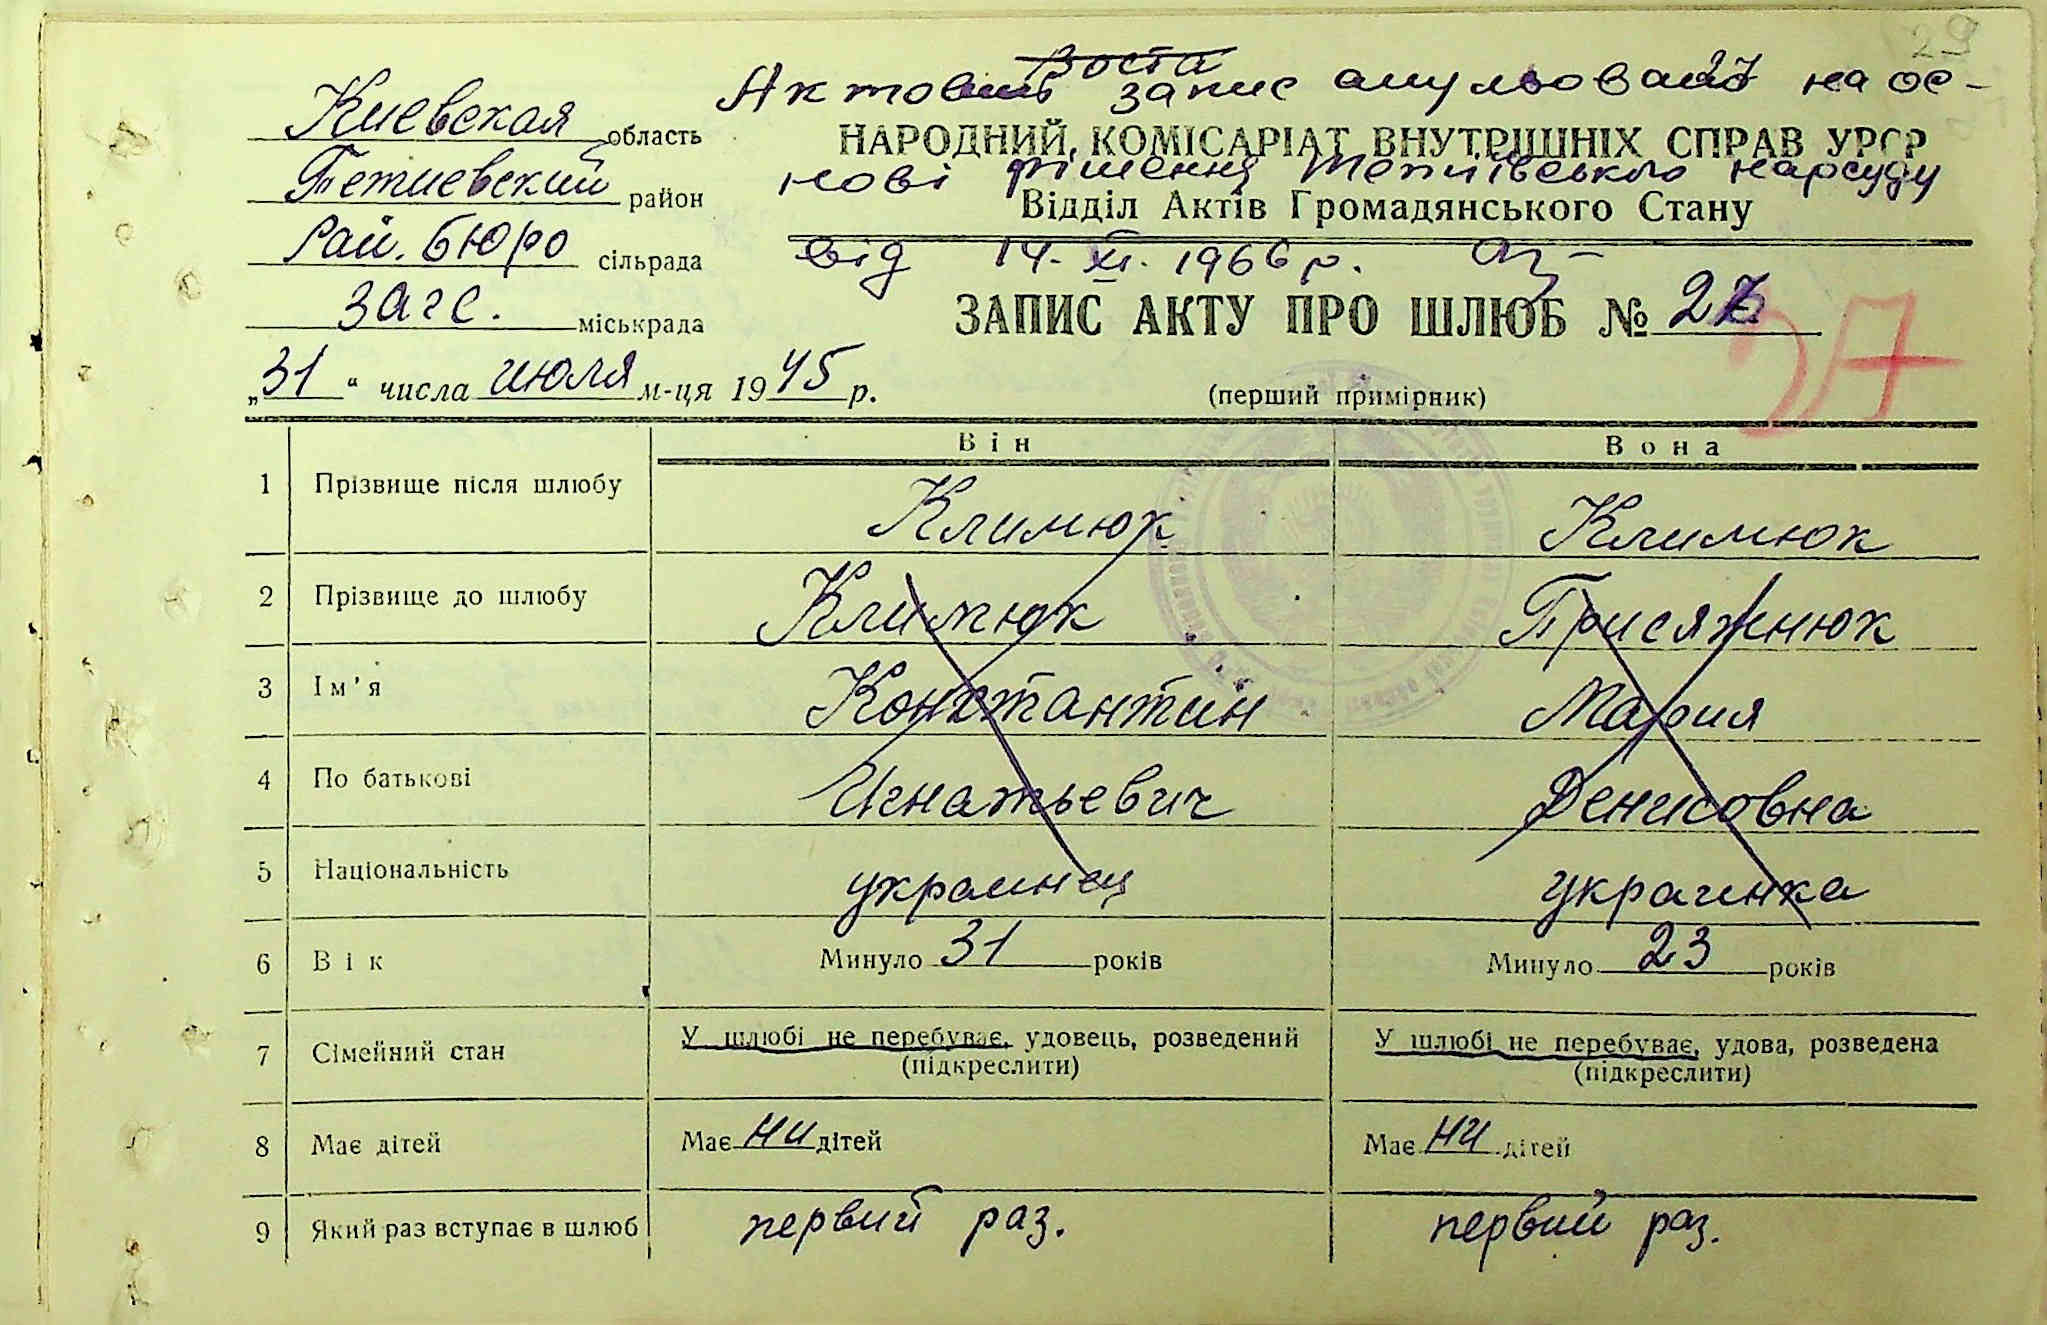 29
воста
Актовий запис анульовано на ос-
Киевская область
НАРОДНИЙ КОМІСАРІАТ ВНУТРІШНІХ СПРАВ УРСР
Тетиевский район
нові рішення Тетіївського нарсуду
Відділ Актів Громадянського Стану
Рай. бюро сільрада
від 14. XI. 1966 р.
загс. міськрада
ЗАПИС АКТУ ПРО ШЛЮБ № 27
27
„31“ числа июля м-ця 1945 р.
(перший примірник)
Він Вона
1 Прізвище після шлюбу Климюк Климюк
2 Прізвище до шлюбу Климюк Присяжнюк
3 Ім'я Константин Мария
4 По батькові Игнатьевич Денисовна
5 Національність украинец украинка
6 Вік Минуло 31 років Минуло 23 років
7 Сімейний стан У шлюбі не перебуває, удовець, розведений У шлюбі не перебуває, удова, розведена
(підкреслити) (підкреслити)
8 Має дітей Має ни дітей Має ни дітей
9 Який раз вступає в шлюб первий раз. первий раз.